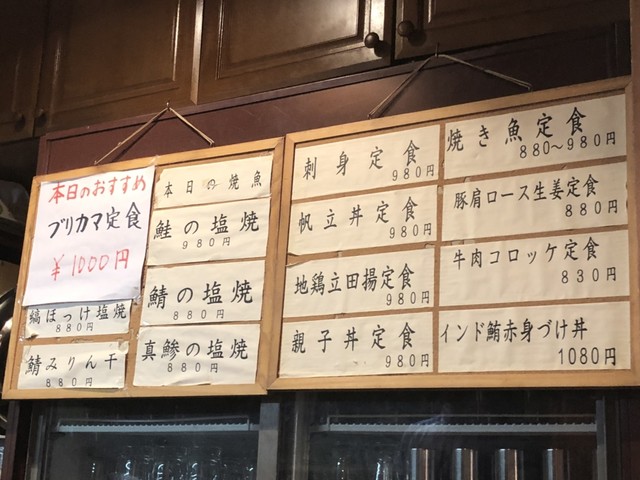 本日のおすすめ
ブリカマ定食
¥1000円
縞ほっけ塩焼
880円
鯖みりん干
880円
本日の焼魚
鮭の塩焼
980円
鯖の塩焼
880円
真鯵の塩焼
880円
刺身定食
980円
帆立丼定食
980円
地鶏立田揚定食
980円
親子丼定食
980円
焼き魚定食
880〜980円
豚肩ロース生姜定食
880円
牛肉コロッケ定食
830円
インド鮪赤身づけ丼
1080円